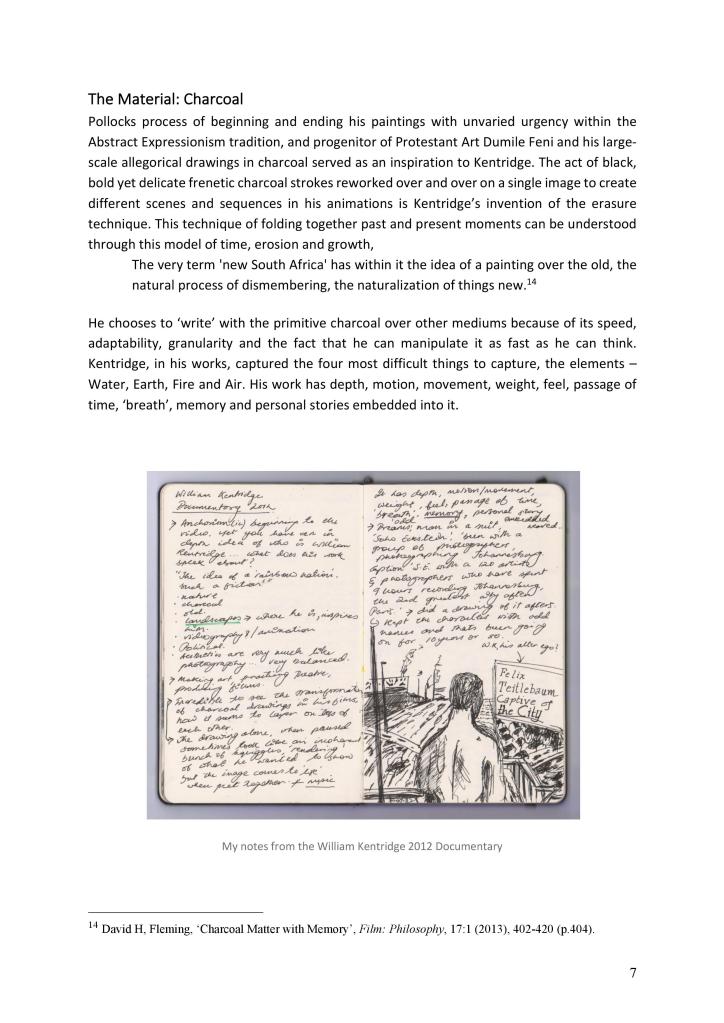 The Material: Charcoal
Pollocks process of beginning and ending his paintings with unvaried urgency within the
Abstract Expressionism tradition, and progenitor of Protestant Art Dumile Feni and his large-
scale allegorical drawings in charcoal served as an inspiration to Kentridge. The act of black,
bold yet delicate frenetic charcoal strokes reworked over and over on a single image to create
different scenes and sequences in his animations is Kentridge’s invention of the erasure
technique. This technique of folding together past and present moments can be understood
through this model of time, erosion and growth,
The very term 'new South Africa' has within it the idea of a painting over the old, the
natural process of dismembering, the naturalization of things new.14
He chooses to ‘write’ with the primitive charcoal over other mediums because of its speed,
adaptability, granularity and the fact that he can manipulate it as fast as he can think.
Kentridge, in his works, captured the four most difficult things to capture, the elements –
Water, Earth, Fire and Air. His work has depth, motion, movement, weight, feel, passage of
time, ‘breath’, memory and personal stories embedded into it.
William Kentridge
Documentary
beginning to the
video, yet you have an in
depth idea of who is William
Kentridge... what does his work
speak about?
"The idea of a 'rainbow nation'.
such a fiction!"
nature
charcoal
old.
landscapes → where he is, inspires
him.
videography/animation
Political.
Aesthetics are very much like
photography... very balanced.
Making art, theatre,
producing films.
Incredible to see the
of charcoal drawings in his films
how it seems to layer on top of
each other.
The drawing alone, when paused
sometimes look like an incoherent
bunch of squiggles, 'rendering'
of what he wanted to show
but the image comes to life
when put together + music
It has depth, motion/movement,
weight, feel, passage of time,
'breath', memory, personal story
embedded
man in a suit,
'Soho Eckstein'. been with a
group of photographers,
photographing Johannesburg.
caption 'S.E. with a 120 artists
& photographers who have spent
9 hours recording Johannesburg,
the 2nd greatest city after
Paris.' → did a drawing of it after.
Kept the characters with odd
names and thats been going
on for 10 years or so.
W.K his alter ego!
Felix
Teitlebaum
Captive of
the City
My notes from the William Kentridge 2012 Documentary
14 David H, Fleming, ‘Charcoal Matter with Memory’, Film: Philosophy, 17:1 (2013), 402-420 (p.404).
7